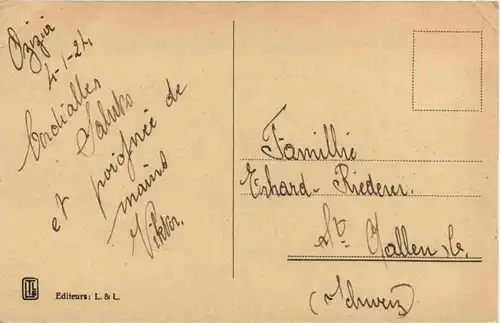 4-1-24.
Cordialles
Saluts
et poignée de
mains
Viktor.
Familie
Erhard-Riederer.
St. Gallen
(Schweiz)
Editeurs: L. & L.